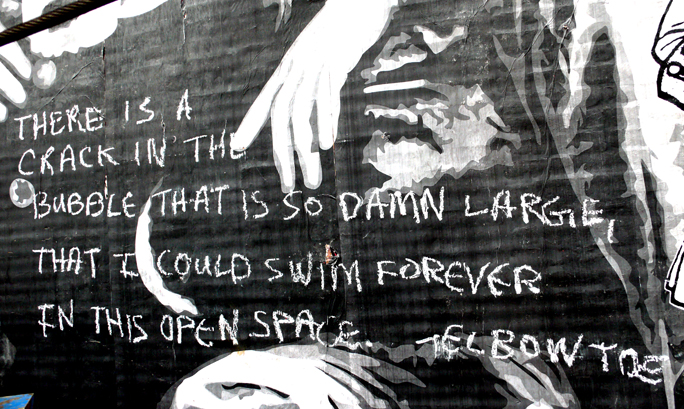 THERE IS A
CRACK IN THE
BUBBLE THAT IS SO DAMN LARGE,
THAT I COULD SWIM FOREVER
IN THIS OPEN SPACE. -ELBOW TOE